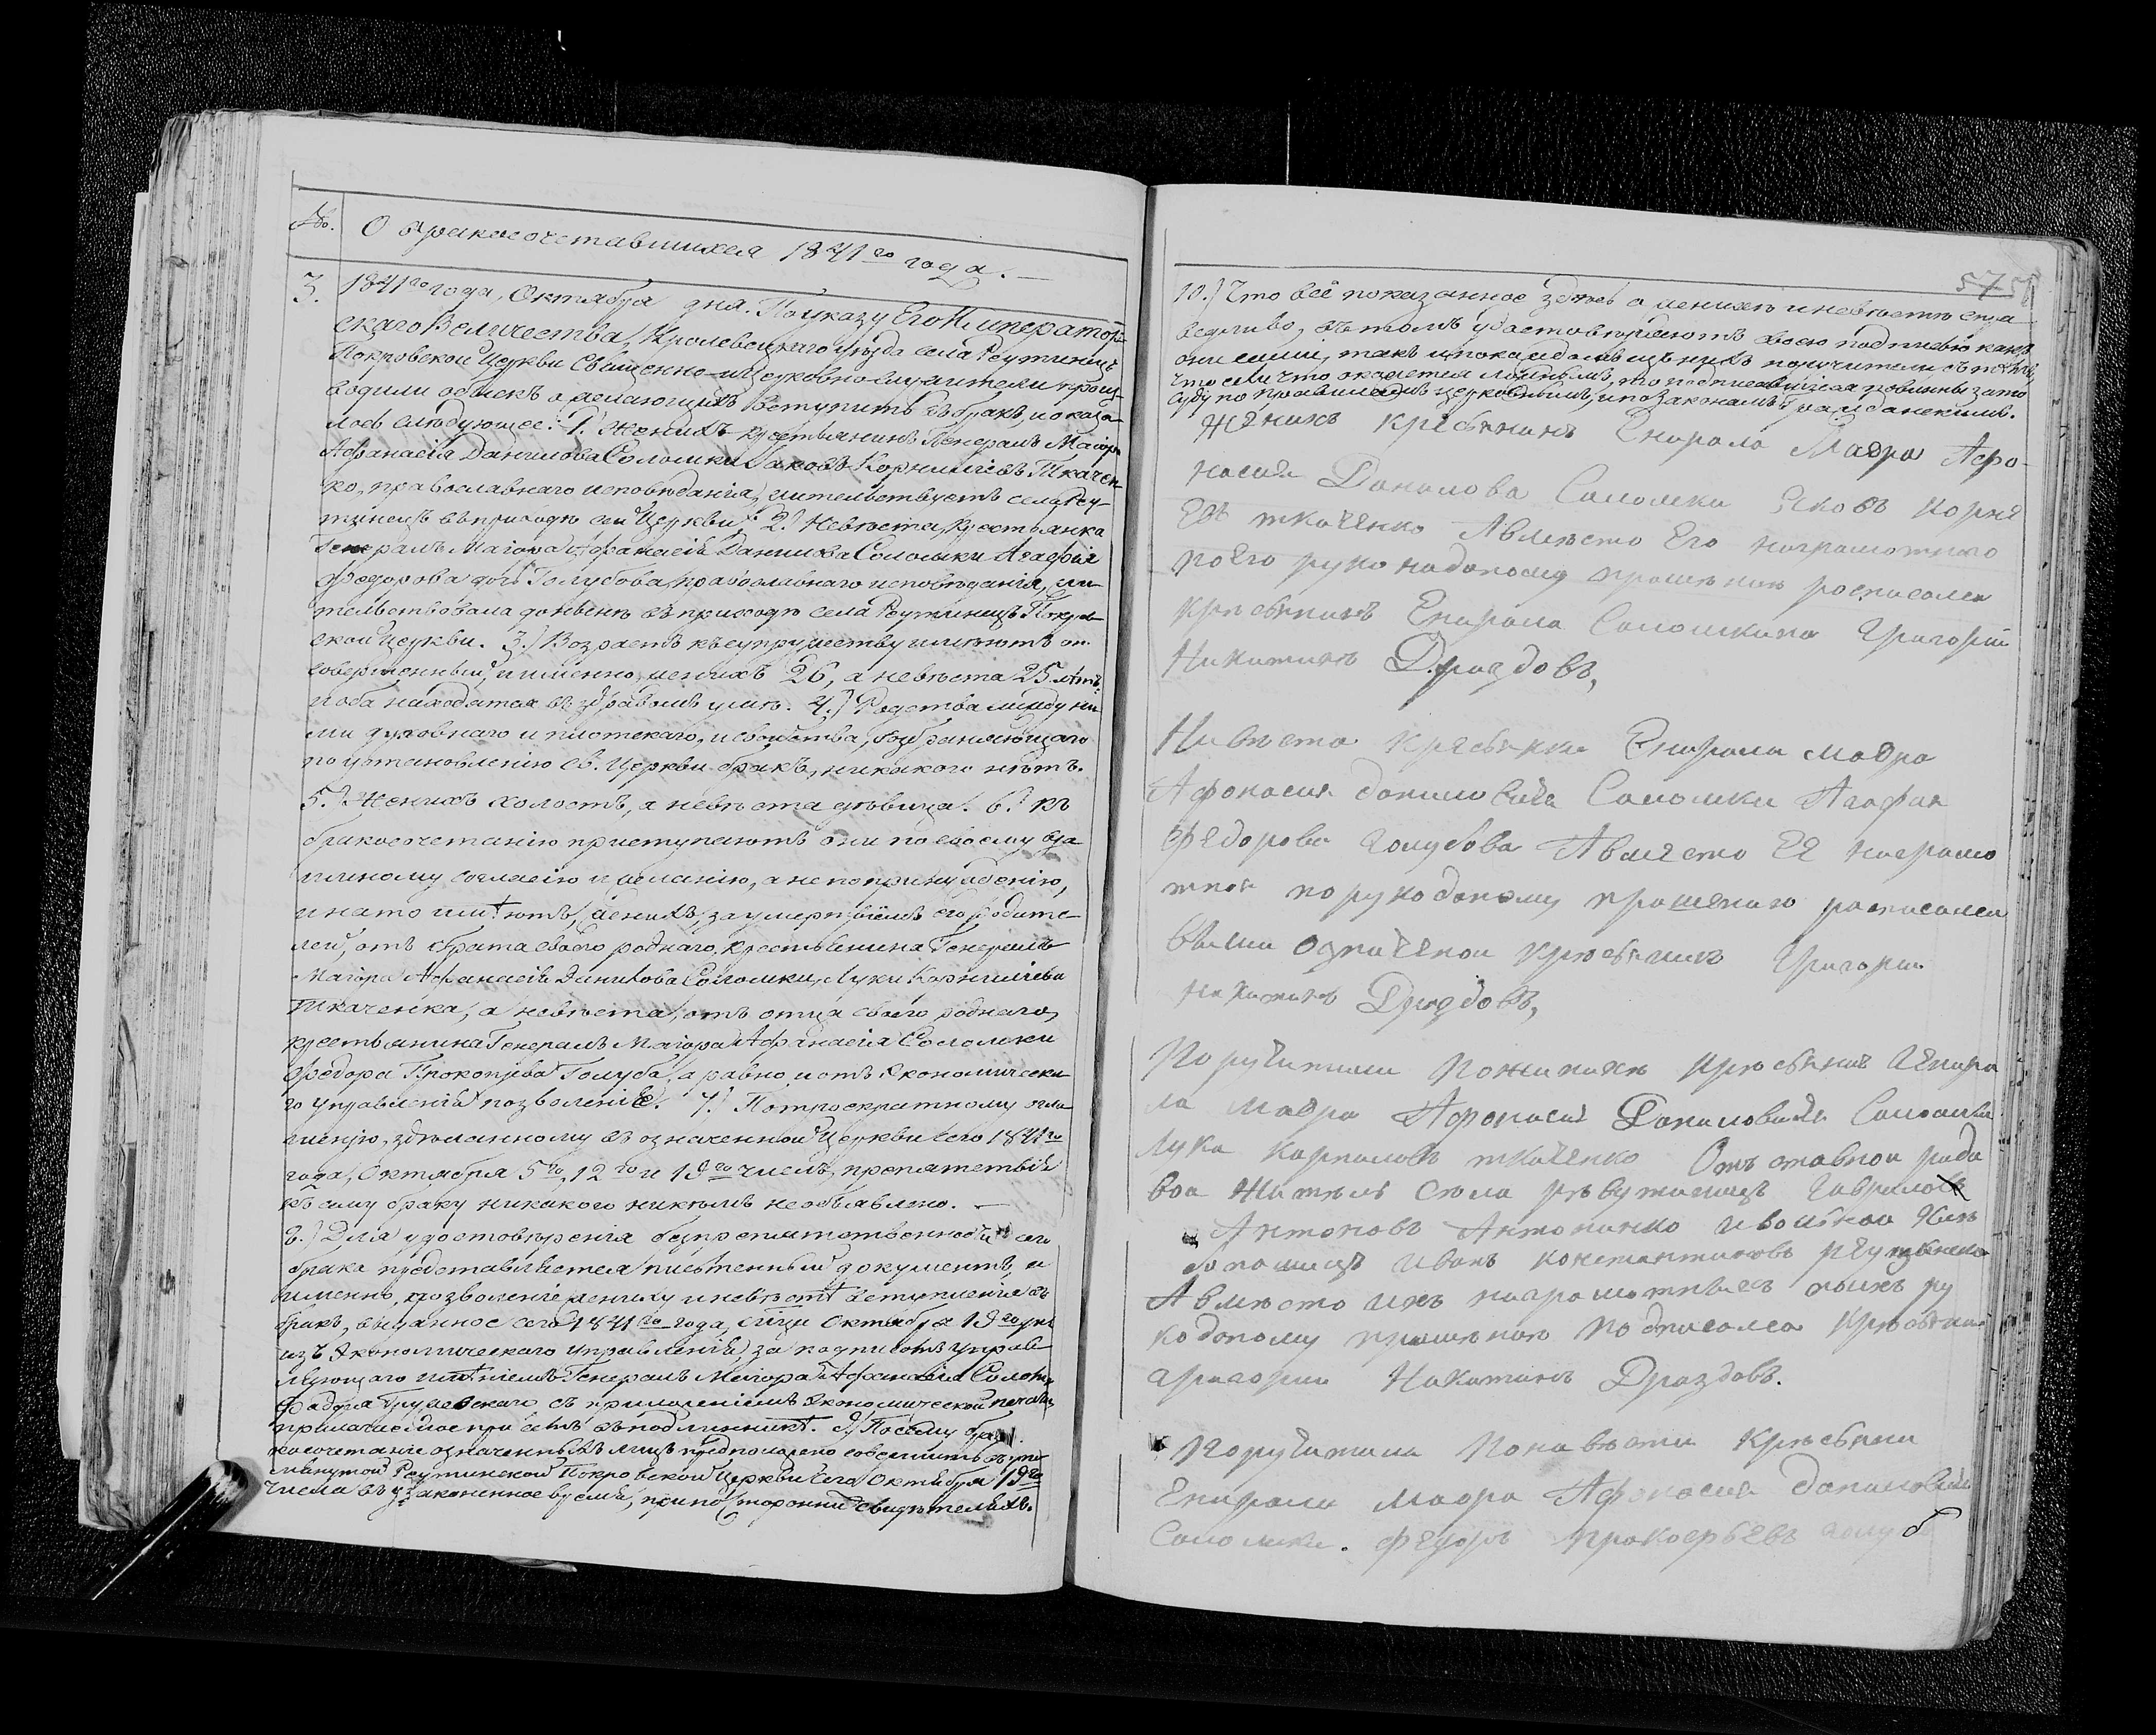 №. О бракосочетавшихся 1841го года.
3. 1841го года, Октября дня. По указу Его Император-
скаго Величества, Кролевецкаго Уѣзда села Реутинецъ
Покровской Церкви Священно-и Церковно служители произ-
водили обыскъ о желающихъ вступить въ бракъ, и оказа-
лось слѣдующее: 1.) Женихъ крестьянинъ Генералъ Маіора
Афанасія Данилова Соломки Іаковъ Корниліевъ Ткачен-
ко, православнаго исповѣданія, жительствуетъ села Реу-
тинецъ въ приходѣ сей Церкви; 2.) Невѣста, крестьянка
Генералъ Маіора Афанасія Данилова Соломки Агафія
Федорова дочь Голубова, православнаго исповѣданія, жи-
тельствовала донынѣ въ приходѣ села Реутинецъ Покров-
ской Церкви. 3.) Возрастъ къ супружеству имѣютъ
совершенный, и именно женихъ 26, а невѣста 25 лѣтъ
и оба находятся въ здравомъ умѣ. 4.) Родства между ни-
ми духовнаго и плотскаго, и свойства, возбраняющаго
по установленію Св. Церкви бракъ, никакого нѣтъ.
5.) Женихъ холостъ, а невѣста дѣвица. 6.) Къ
бракосочетанію приступаютъ они по своему вза-
имному согласію и желанію, а не по принужденію,
и на то имѣютъ, женихъ, за умертвіемъ его родите-
лей, отъ брата своего роднаго, крестьянина Генералъ
Маіора Афанасія Данилова Соломки, Луки Корниліева
Ткаченка, а невѣста, отъ отца своего роднаго,
крестьянина Генералъ Маіора Афанасія Соломки
Федора Прокопіева Голуба, а равно и отъ Економическа-
го управленія позволеніе. 7.) По троекратному огла-
шенію, здѣланному въ означенной Церкви сего 1841го
года, Октября 5го, 12го и 19го числъ, препятствія
къ сему браку никакого никѣмъ не объявлено.
8.) Для удостовѣренія безпрепятственности сего
брака представляется письменный документъ, а
именно, позволеніе жениху и невѣстѣ вступленія въ
бракъ, выданное сего 1841го года, Октября 19го дня
изъ Экономическаго управленія, за подписомъ управ-
ляющаго имѣніемъ Генералъ Маіора Афанасія Соломки
съ приложеніемъ Экономической печати,
прилагаемое при семъ въ подлинникѣ. 9.) По сему бра-
косочетаніе означенныхъ лицъ предположено совершить въ упо-
мянутой Реутинской Покровской Церкви сего Октября 19го
числа въ узаконенное время, при постороннихъ свидѣтеляхъ.
57
10.) Что всё показанное здѣсь о женихѣ и невѣстѣ спра-
ведливо, въ томъ удостовѣряютъ своею подписью какъ
они сами, такъ и по каждомъ изъ нихъ поручители съ тѣмъ,
что если что окажется ложнымъ, то подписавшіеся повинны за то
суду по правиламъ церковнымъ, и по законамъ Гражданскимъ.
Женихъ Кресьянинъ Енирала Маора Афо-
насия Данилова Саломки Яковъ Корне
евъ ткаченко Авмѣсто Его награмотнаго
по его руко надоному прошению росписался
Кресьянинъ Енирала Саломкина Григорий
Никитинъ Дроздовъ,
Нивѣста кресьянки Енирала маора
Афонасия даниловича Саломки Агафия
Федорова голубова Авместо Ее награмо
тной по рукодоному прошению расписался
Кресьянинъ Григорий
Никитинъ Дроздовъ,
Поручители Пожинихе кресьянинъ Генира
ла Маора Афонасия Даниловича Саломки
Лука Карниловъ ткаченко Отъ ставной ряда
вои Житель Села рѣвутинецъ Гаврило
Антоновъ Антоненко
Иванъ Константиновъ
Авмѣсто ихъ награмотныхъ поихъ ру
кодоному прошению Подписался Кресьянинъ
Григории Никитинъ Дроздовъ.
Поручители Понавести Кресьянинъ
Енирала Маора Афонасия Даниловича
Саломки. Федоръ Прокофьевъ голуб